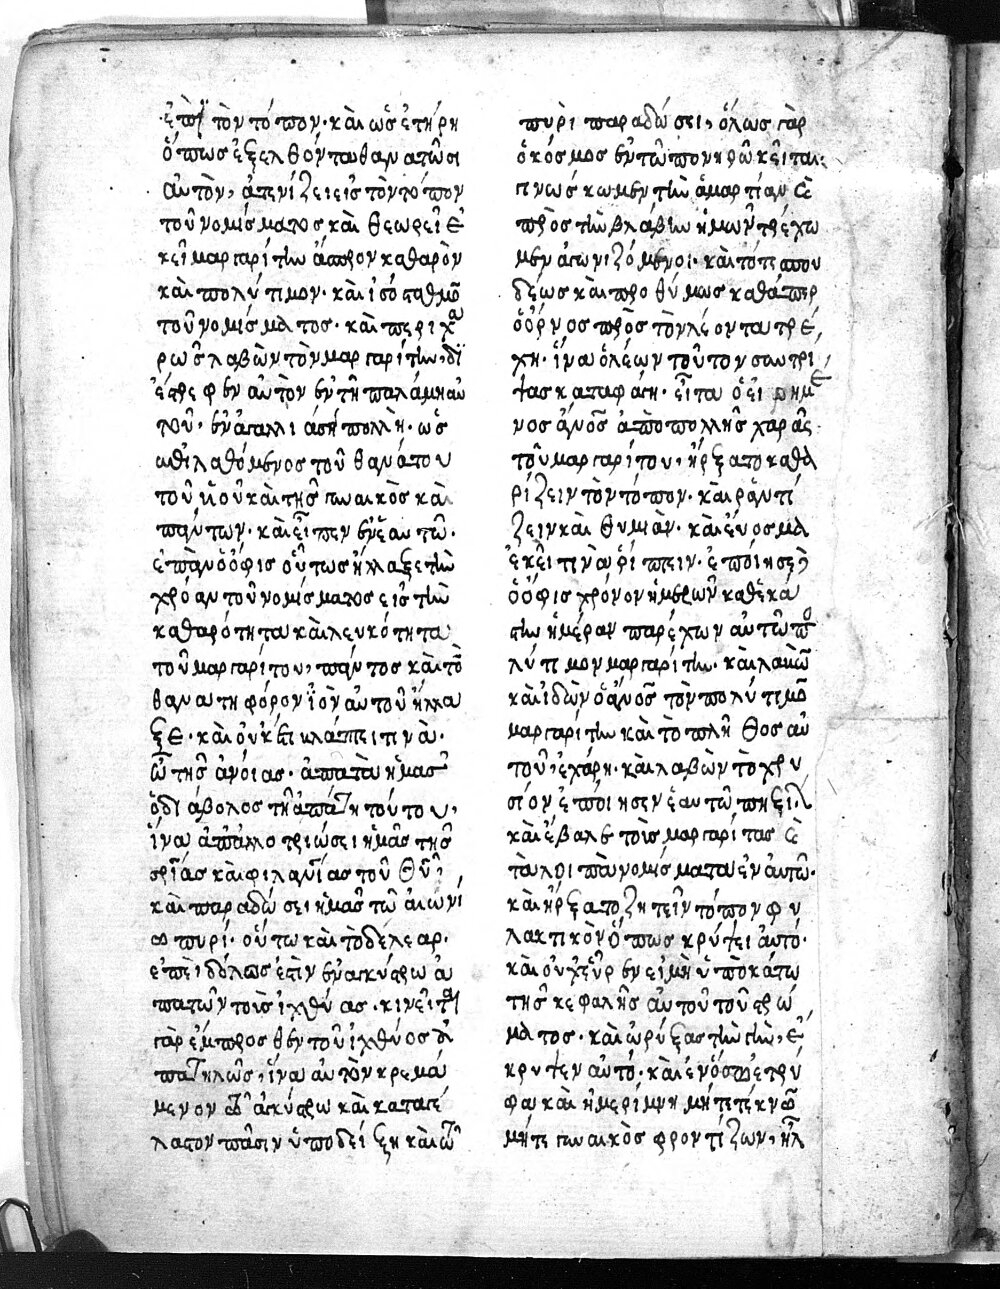 ἐπὶ τὸν τόπον· καὶ ὡς ἐτήρη
ὅπως ἐξελθόντα θανατώσι
αὐτὸν, ἀτενίζει εἰς τὸν τόπον
τοῦ νομίσματος καὶ θεωρεῖ ἐ
κεῖ μαργαρίτην ἄσπρον καθαρὸν
καὶ πολύτιμον· καὶ ἰσόσταθμον
τοῦ νομίσματος· καὶ περιχα
ρῶς λαβὼν τὸν μαργαρίτην,
ἔστρεφεν αὐτὸν ἐν τῇ παλάμη αὐ
τοῦ, ἐν ἀγαλλιάσει πολλῆ· ὡς
ἐπιλαθόμενος τοῦ θανάτου
τοῦ υἱοῦ καὶ τῆς γυναικὸς καὶ
πάντων· καὶ εἶπεν ἐν ἑαυτῶ·
ἐπὰν ὁ ὄφις οὕτως ἤλλαξε τὴν
χρόαν τοῦ νομίσματος εἰς τὴν
καθαρότητα καὶ λευκότητα
τοῦ μαργαρίτου, πάντος καὶ τὸν
θανατηφόρον ἰὸν αὐτοῦ ἤλλα
ξε· καὶ οὐκ ἔτι βλάπτει τινὰ·
ὢ τῆς ἀνοίας· ἀπατᾶ ἡμᾶς
ὁ διάβολος τῆ ἀπάτη τούτου,
ἵνα ἀπαλλοτριώσει ἡμᾶς τῆς
σρίας καὶ φιλανίας τοῦ θῦ,
καὶ παραδώσει ἡμᾶς τῶ αἰωνί
ω πυρί· οὕτω καὶ τὸ δέλεαρ·
ἐπεὶ δόλος ἐστὶν ἐν ἀγκίστρω ἀ
πατῶν τοὺς ἰχθύας· κινεῖται
γὰρ ἔμπροσθεν τοῦ ἰχθύος ἀ
πατηλῶς, ἵνα αὐτὸν κρεμά
μενον ἐν ἀγκίστρω καὶ καταγέ
λαστον πᾶσιν ὑποδείξη καὶ τῶ
πυρὶ παραδώσει, ὅλως γὰρ
ὁ κόσμος ἐν τῶ πονηρῶ κεῖται·
γινώσκωμεν τὴν ἁμαρτίαν καὶ
πρὸς τὴν βλάβην ἡμῶν τρέχω
μεν ἀγωνιζόμενοι· καὶ τότε σπου
δέως καὶ προθύμως καθάπερ
ὁ ὄρνος πρὸς τὸν λέοντα τρέ
χη· ἵνα ὁ λέων τοῦτον
καταφάγη· εἶτα ὁ εἰρημέ
νος ἀνος ἀπὸ πολλῆς χαρᾶς
τοῦ μαργαρίτου, ἤρξατο καθα
ρίζειν τὸν τόπον· καὶ ῥαντί
ζειν καὶ θυμιᾶν· καὶ
ἐκεῖ τινὰ ῥίπτειν· ἐποίησε
ὁ ὄφις χρόνον ἡμερῶν καθεκά
στην ἡμέραν παρέχων αὐτῶ πο
λύτιμον μαργαρίτην· καὶ λαβὼν
καὶ ἰδὼν ὁ ἀνος τὸν πολύτιμον
μαργαρίτην καὶ τὸ πλῆθος αὐ
τοῦ, ἐχάρη· καὶ λαβὼν τὸ χρυ
σίον ἐποίησεν ἑαυτῶ
καὶ ἔβαλε τοὺς μαργαρίτας καὶ
τὰ λοιπὰ νομίσματα ἐν αὐτῶ·
καὶ ἤρξατο ζητεῖν τόπον φυ
λακτικὸν ὅπως κρύψει αὐτό·
καὶ οὐχ εὗρεν εἰ μὴ ὑποκάτω
τῆς κεφαλῆς αὐτοῦ τοῦ στρώ
ματος· καὶ ὠρύξας τὴν γῆν, ἔ
κρυψεν αὐτό· καὶ ἔνδον ἐτρύ
φα καὶ ἡμερίμνη μήτε τέκνων
μήτε γυναικὸς φροντίζων,